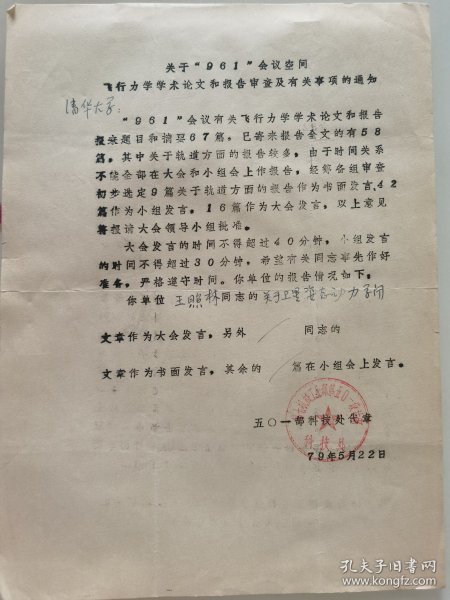 关于“961”会议空间
飞行力学学术论文和报告审查及有关事项的通知
清华大学:
“961”会议有关飞行力学学术论文和报告
报来题目和摘要67篇,已寄来报告全文的有58
篇,其中关于轨道方面的报告较多,由于时间关系
不能全部在大会和小组会上作报告,经筹备组审查
初步选定9篇关于轨道方面的报告作为书面发言,42
篇作为小组发言,16篇作为大会发言,以上意见
将报请大会领导小组批准。
大会发言的时间不得超过40分钟,小组发言
的时间不得超过30分钟,希望有关同志事先作好
准备,严格遵守时间。你单位的报告情况如下。
你单位 王照林同志的关于卫星姿态动力学的
文章作为大会发言,另外 / 同志的
文章作为书面发言,其余的 / 篇在小组会上发言。
五〇一部科技处代章
科技处
79年5月22日
孔夫子旧书网
www.kongfz.com